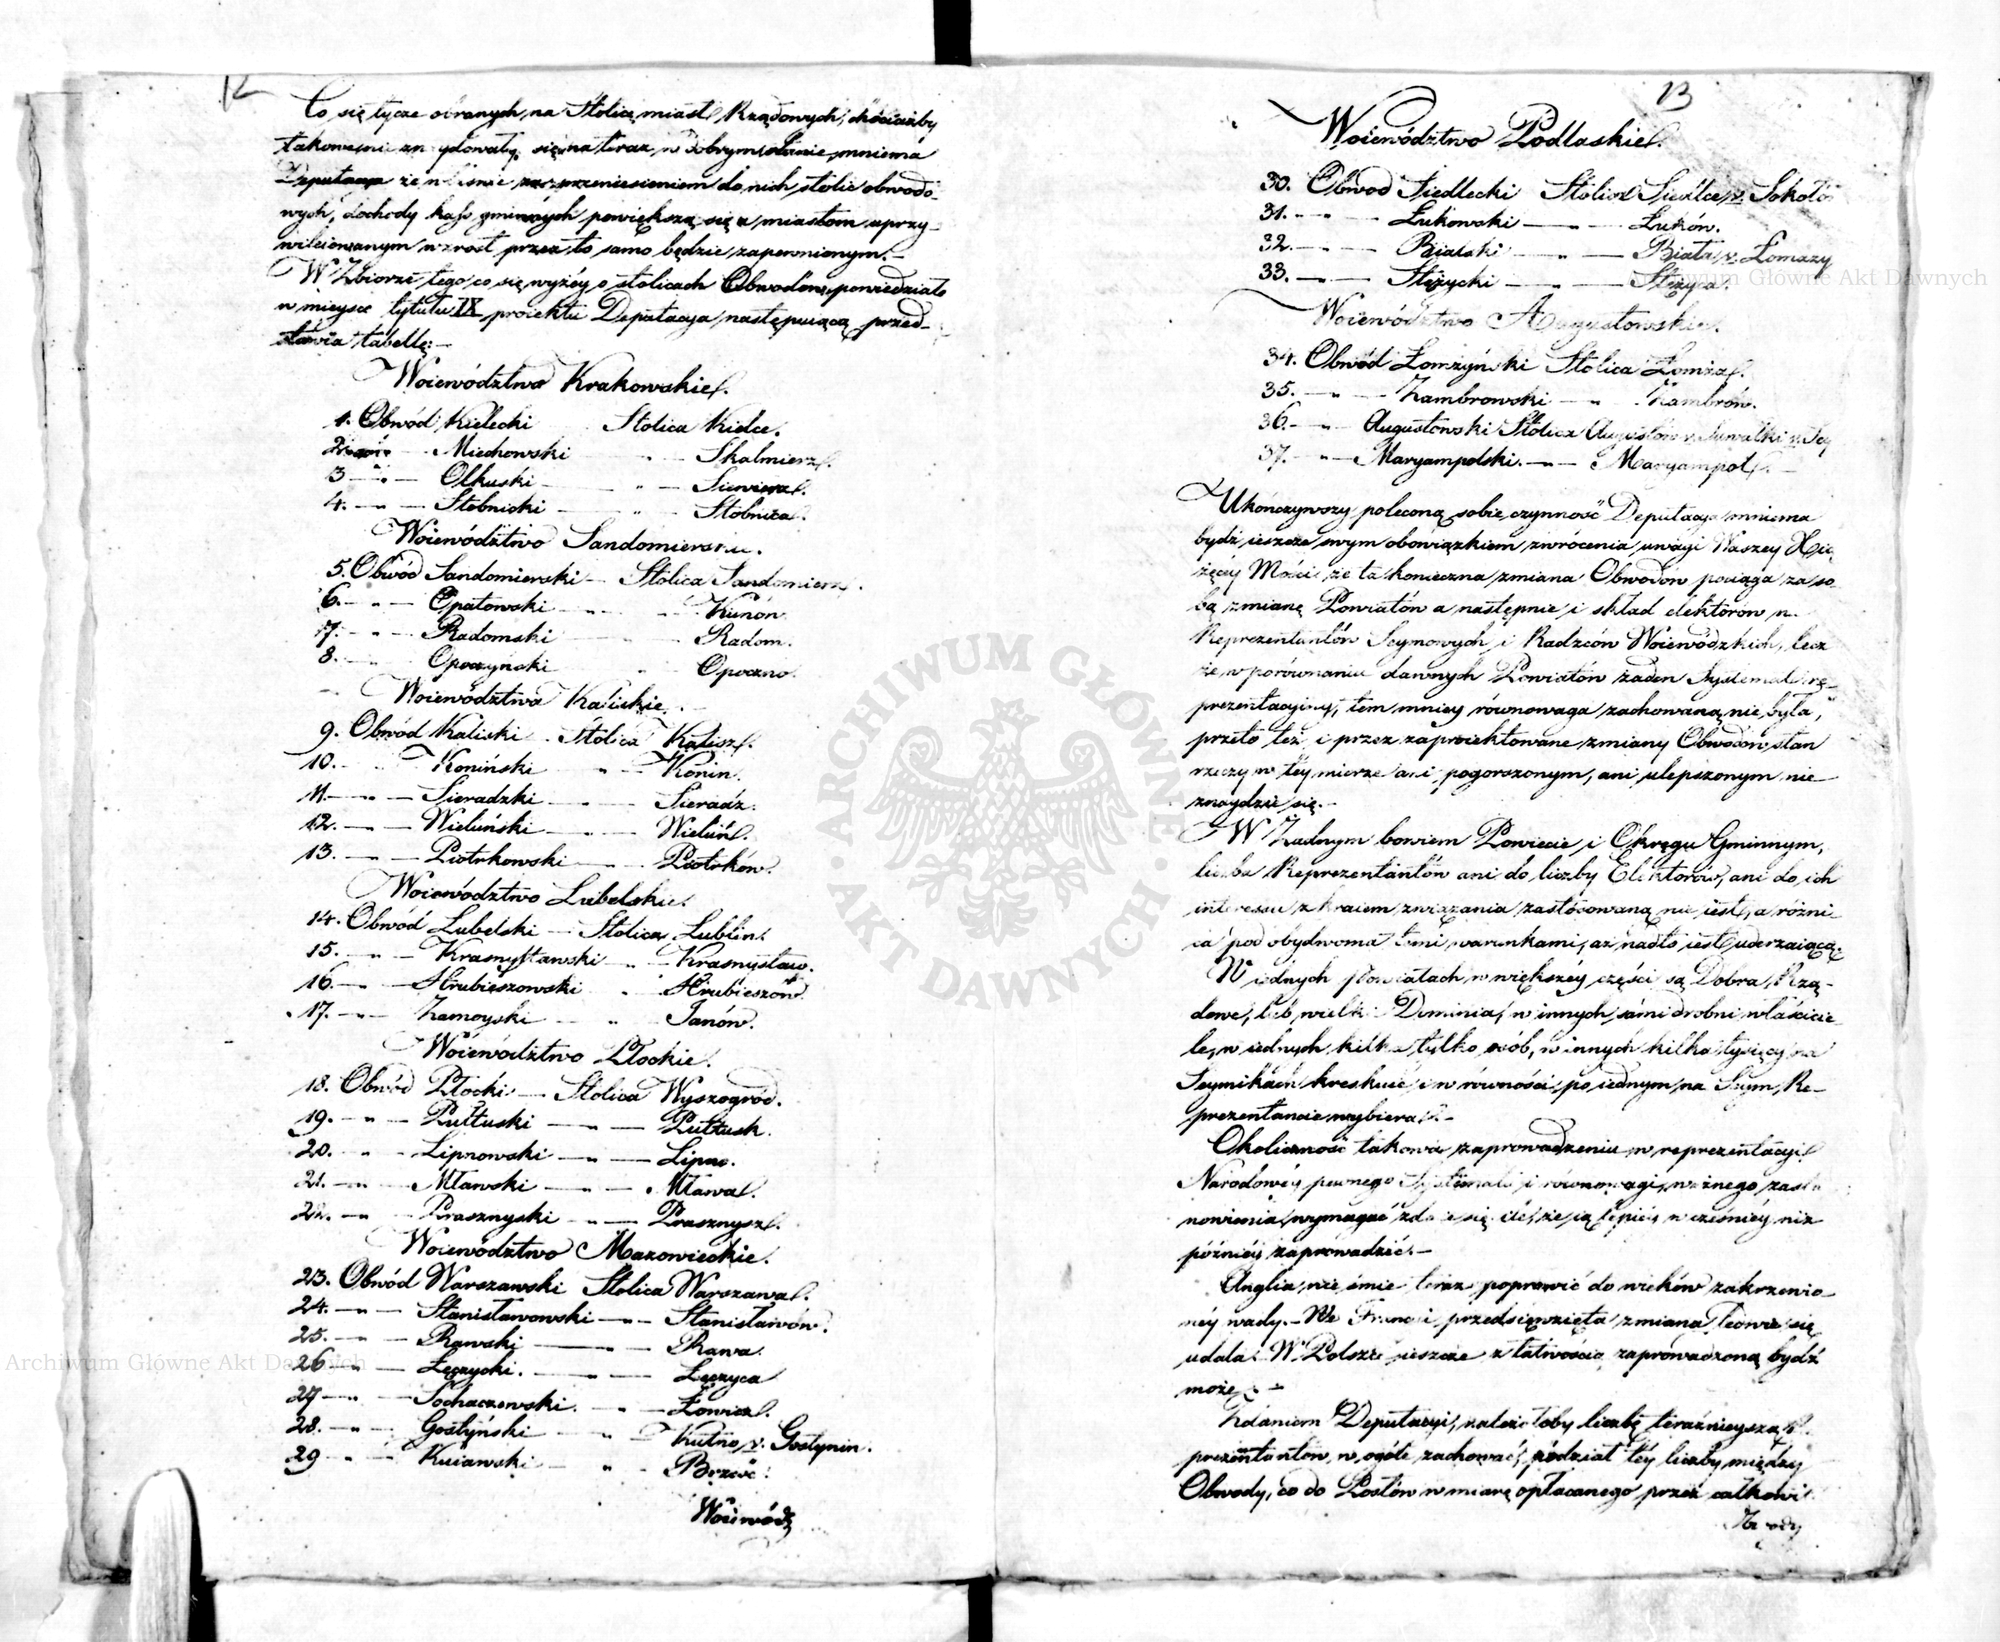 12
Co się tycze obranych na Stolicę miast Rządowych, chociażby
takowe nie znaydowały się na teraz w dobrym stanie, mniema
Deputacya że właśnie za przeniesieniem do nich stolic obwodo-
wych, dochody kass gminnych powiększą się a miastom uprzy-
wileiowanym wzrost przez to samo będzie zapewnionym.-
W Zbiorze tego co się wyżey o stolicach Obwodów powiedziało
w mieysce tytułu IX proiektu Deputacya następuiącą przed-
stawia tabellę:-
Woiewództwo Krakowskie.
1. Obwód Kielecki Stolica Kielce.
2. Miechowski " Skalmierz.
3 " Olkuski " Siewierz.
4. " Stobnicki " Stobnica.
Woiewództwo Sandomierskie.
5. Obwód Sandomierski Stolica Sandomierz.
6. " Opatowski " Kunów
7. " Radomski Radom.
8. Opoczyński " Opoczno.
Woiewództwo Kaliskie.
9. Obwód Kaliski Stolica Kalisz.
10. Koniński " Konin.
11. " Sieradzki " Sieradz.
12. " Wieluński " Wieluń.
13. " Piotrkowski " Piotrków.
Woiewództwo Lubelskie.
14. Obwód Lubelski Stolica Lublin.
15. " Krasnystawski " Krasnystaw.
16. " Hrubieszowski " Hrubieszów.
17. " Zamoyski " Janów.
Woiewództwo Płockie.
18. Obwód Płocki Stolica Wyszogród.
19. " Pułtuski " Pułtusk.
20. " Lipnowski " Lipno.
21. " Mławski " Mława.
22. " Prasznyski " Prasznysz.
Woiewództwo Mazowieckie.
23. Obwód Warszawski Stolica Warszawa.
24. " Stanisławowski " Stanisławów.
25. " Rawski Rawa.
26 " Łęczycki. " Łęczyca
27 " Sochaczewski. " Łowicz.
28. " Gostyński " Kutno v. Gostynin.
29 " Kuiawski " Brześć.
Woiewódz
13
Woiewództwo Podlaskie.
30. Obwod Siedlecki Stolica Siedlce v. Sokołó
31. " Łukowski " Łuków.
32. " Bialski " Biała v. Łomazy
33. " Stężycki " Stężyca.
Woiewództwo Augustowskie.
34. Obwód Łomżyński Stolica Łomża.
35. " Zambrowski " Zambrów.
36. " Augustowski Stolica Augustów v. Suwałki v. Sey
37. " Maryampolski. " Maryampol.
Ukończywszy poleconą sobie czynność Deputacya mniema
bydź ieszcze swym obowiązkiem zwrócenia uwagi Waszey Xią
żęcey Mości że ta konieczna zmiana Obwodów pociąga za so
bą zmianę Powiatów a następnie i skład elektorów n.
Reprezentantów Seymowych i Radzców Woiewódzkich, lecz
że w porównaniu dawnych Powiatów żaden Systemat re-
prezentacyiny, tem mniey równowaga zachowaną nie była,
przeto też i przez zaproiektowane zmiany Obwodów stan
rzeczy w tey mierze ani pogorszonym, ani ulepszonym nie
znaydzie się.-
W Żadnym bowiem Powiecie i Okręgu Gminnym,
liczba Reprezentantów ani do liczby Elektorów, ani do ich
interessu z kraiem związania zastosowaną nie iest, a różni
ca pod obydwoma temi warunkami, aż nadto iest uderzaiącą.
W iednych powiatach w większey części są Dobra Rzą-
dowe, lub wielkie Dominia, w innych sami drobni właścicie-
le, w iednych kilka tylko osób, w innych kilka tysięcy na
Seymikach kreskuie i w równości po iednym na Seym Re-
prezentancie wybiera.-
Okoliczność takowa zaprowadzeniu w reprezentacyi
Narodowey pewnego Systematu i równowagi, ważnego zasta
nowienia wymagać zdaie się, ileże ią lepiey wcześniey niż
późniey zaprowadzić.-
Anglia nie śmie teraz poprawić do wieków zakrzenio
ney wady.- We Francyi przedsięwzięta zmiana ledwie się
udała. W Polszcze ieszcze z łatwością zaprowadzoną bydź
może.-
Zdaniem Deputacyi, należałoby liczbę teraźnieyszą Re
prezentantów w ogóle zachować, podział tey liczby między
Obwody, co do Posłów w miarę opłacanego przez całkowi
te wody
Archiwum Główne Akt Dawnych
Archiwum Główne Akt Dawnych
ARCHIWUM GŁÓWNE AKT DAWNYCH